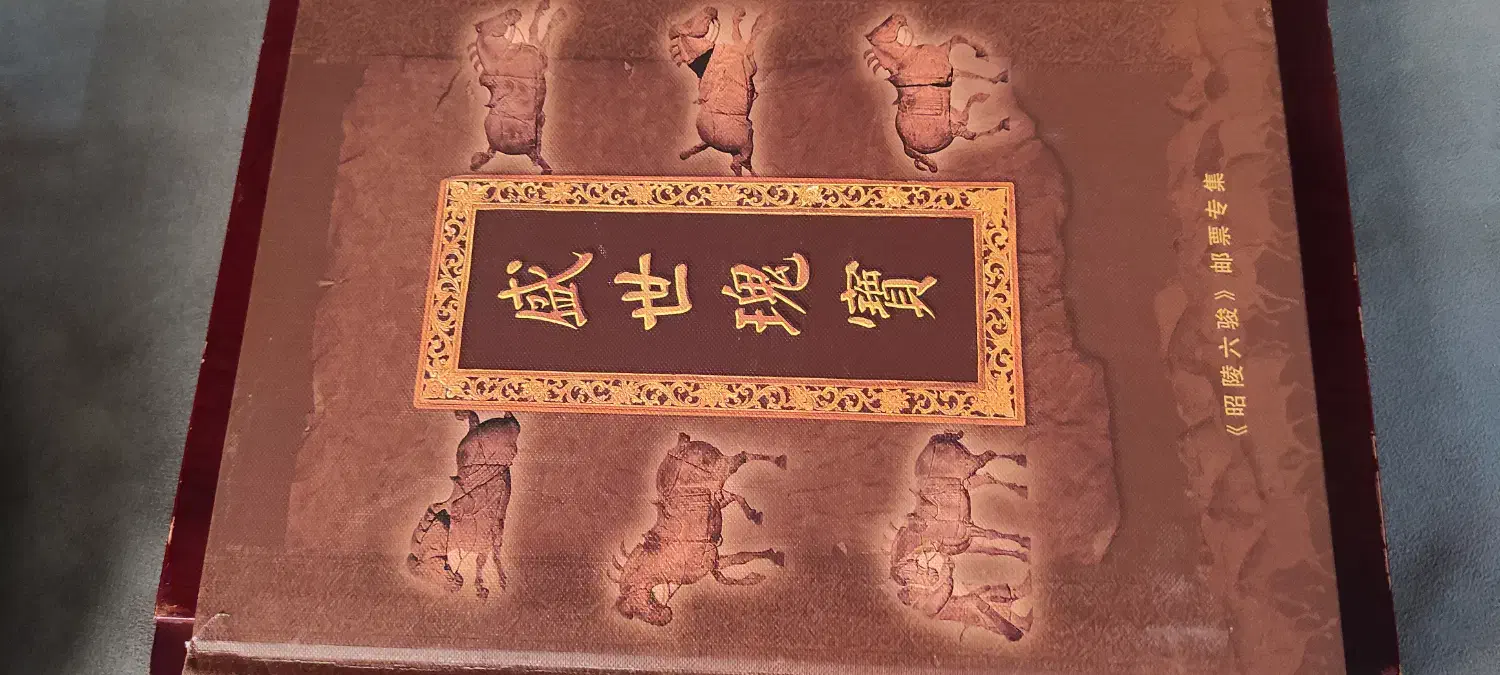 盛世瑰寶
《昭陵六骏》邮票专集